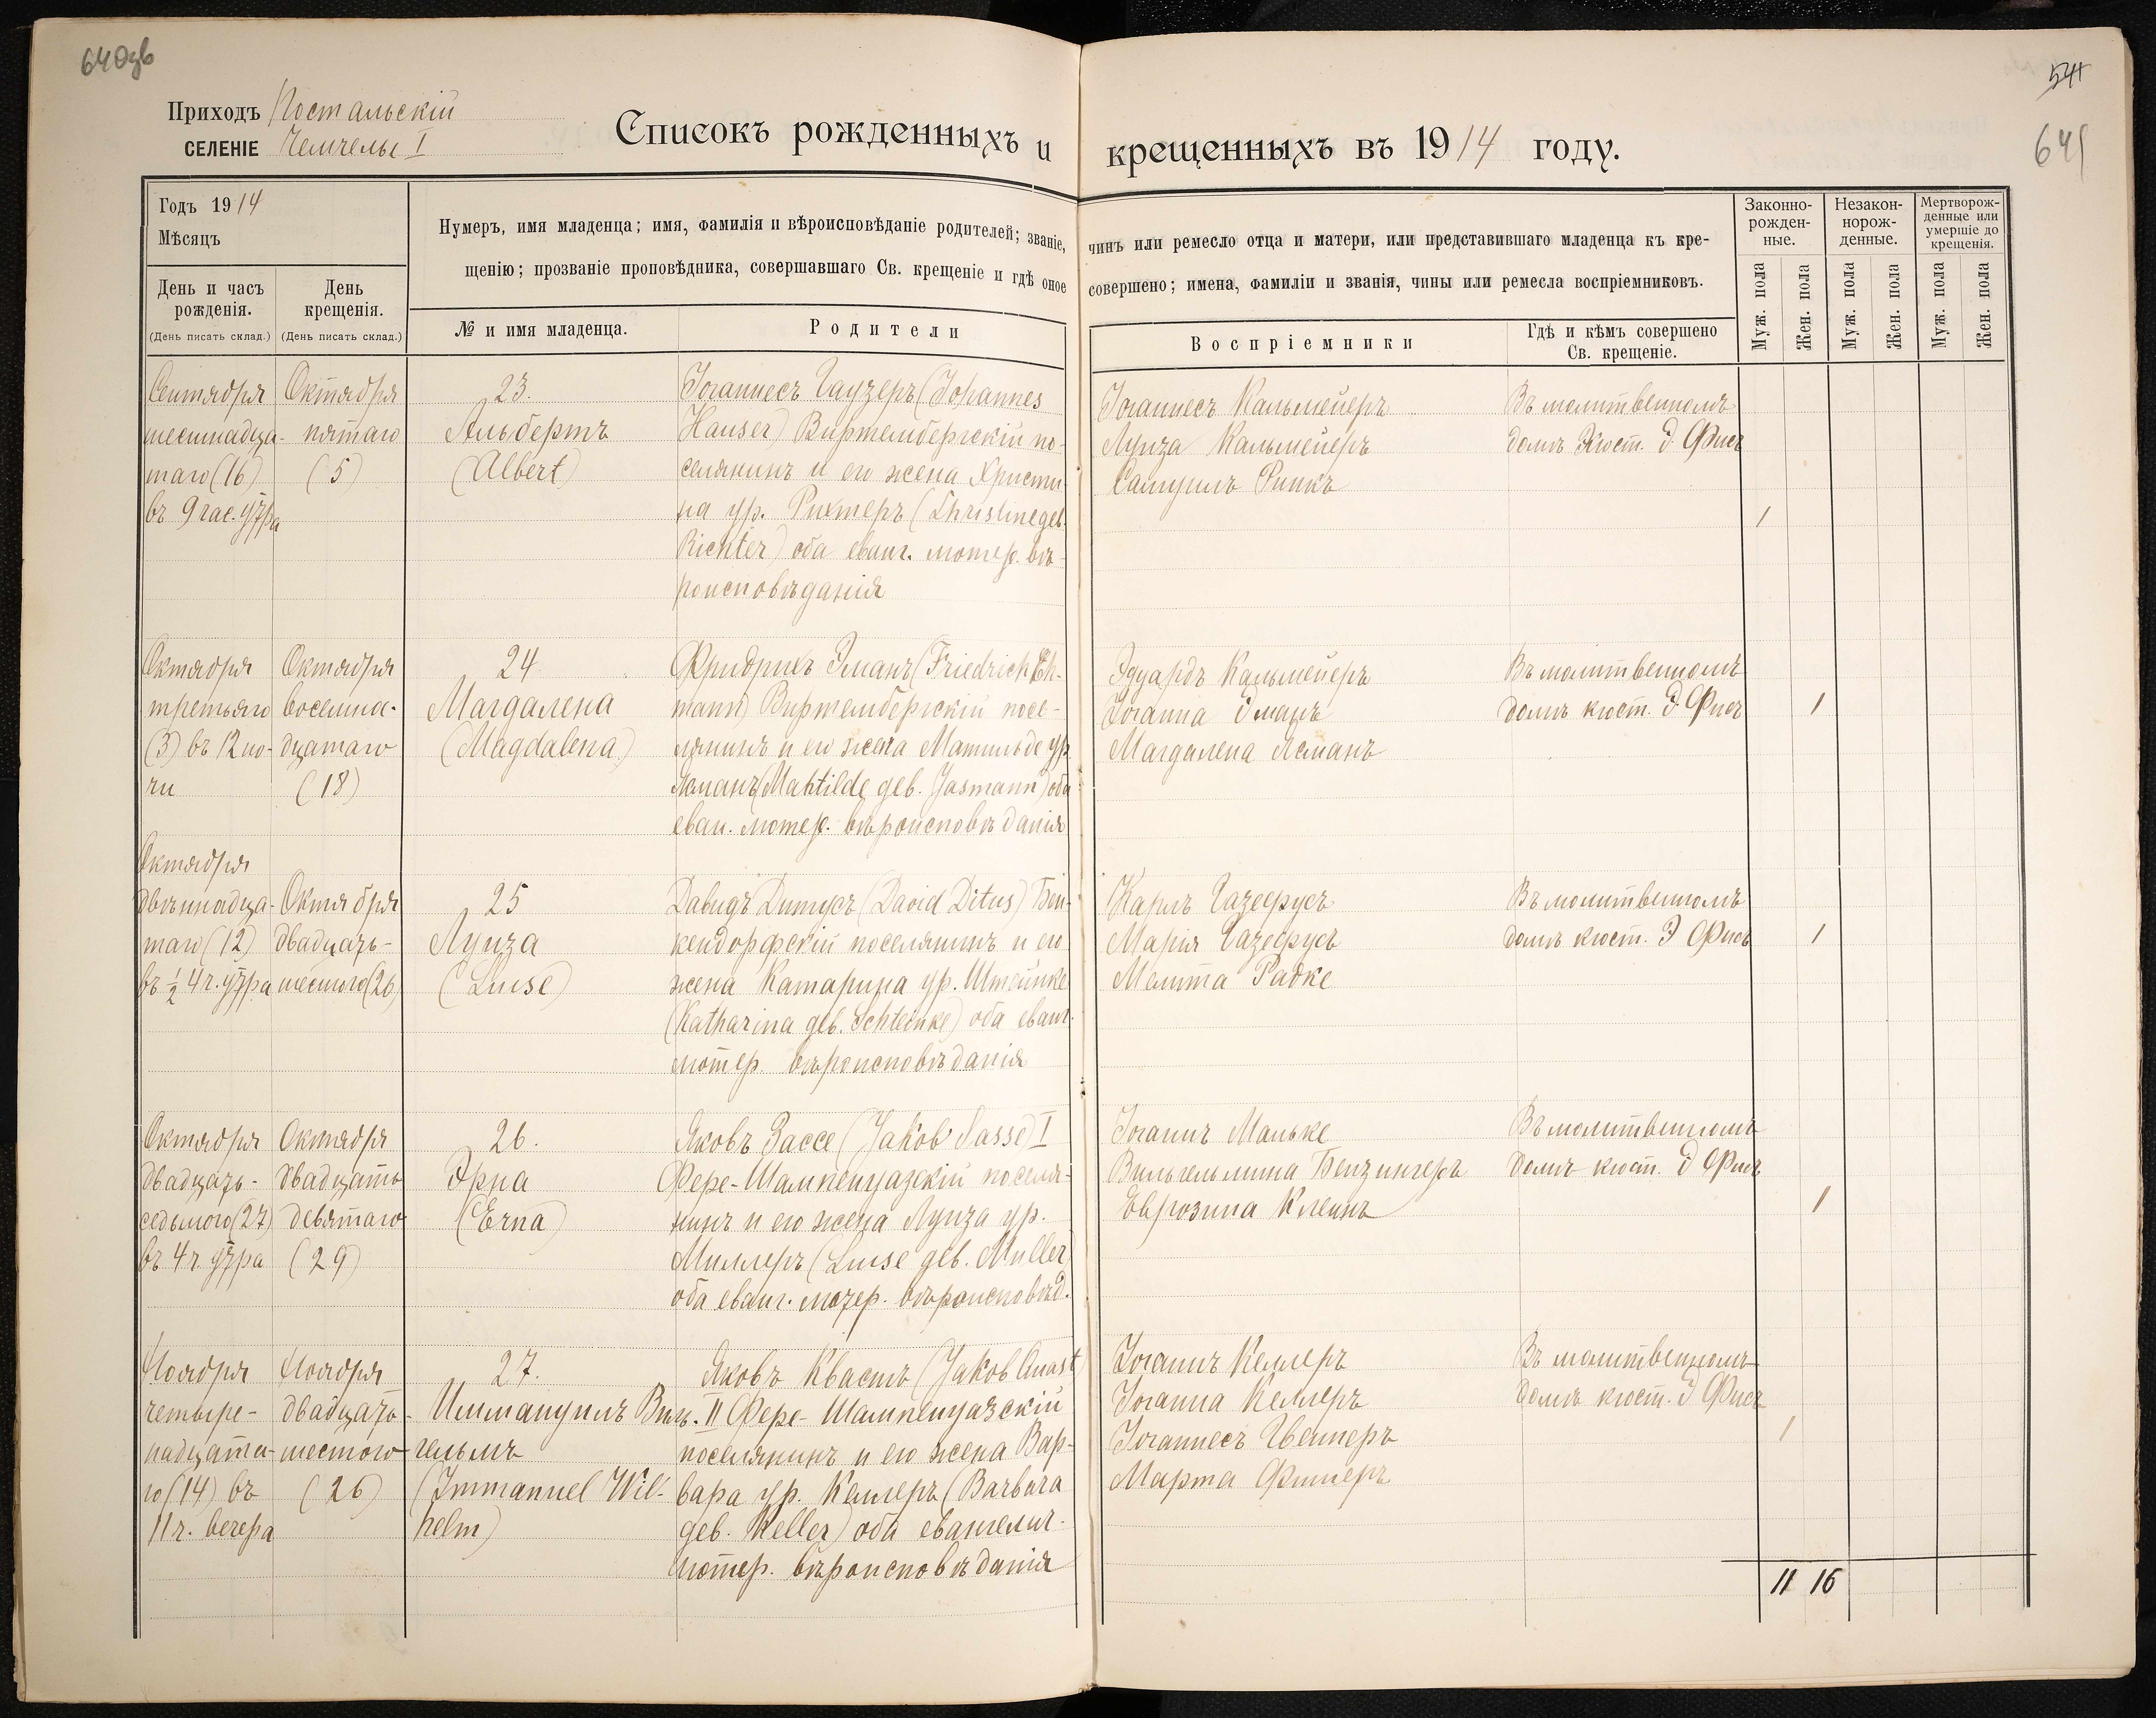 640зв
541
641
Приходъ Постальскій
СЕЛЕНІЕ Чемчелы I
Списокъ рожденныхъ и крещенныхъ въ 1914 году.
Годъ 1914
Мѣсяцъ
День и часъ рожденія.
(День писать склад.)
День крещенія.
(День писать склад.)
Нумеръ, имя младенца; имя, фамилія и вѣроисповѣданіе родителей; званіе, чинъ или ремесло отца и матери, или представившаго младенца къ кре-
щенію; прозваніе проповѣдника, совершавшаго Св. крещеніе и гдѣ оное совершено; имена, фамиліи и званія, чины или ремесла воспріемниковъ.
№ и имя младенца.
Родители
Воспріемники
Гдѣ и кѣмъ совершено
Св. крещеніе.
Законно-
рожден-
ные.
Незакон-
норож-
денные.
Мертворож-
денные или
умершіе до
крещенія.
Муж. пола
Жен. пола
Муж. пола
Жен. пола
Муж. пола
Жен. пола
Сентября
шестнадца-
таго (16)
въ 9 час. утра
Октября
пятаго
(5)
23.
Альбертъ
(Albert)
Іоганнесъ Гаузеръ (Johannes
Hauser) Виртембергскій по-
селянинъ и его жена Христи-
на ур. Рихтеръ (Christine geb.
Richter) оба еванг. лютер. вѣ-
роисповѣданія
Іоганнесъ Кальмейеръ
Луиза Кальмейеръ
Самуилъ Ринкъ
Въ молитвенномъ
домѣ Кюст. Э. Фисъ
1
Октября
третьяго
(3) въ 12 но-
чи
Октября
восемна-
дцатаго
(18)
24.
Магдалена
(Magdalena)
Фридрихъ Эманъ (Friedrich Eh-
mann) Виртембергскій посе-
лянинъ и его жена Матильде ур.
Ясманъ (Mahtilde geb. Jasmann) оба
еван. лютер. вѣроисповѣданія
Эдуардъ Кальмейеръ
Іоганна Эманъ
Магдалена Ясманъ
Въ молитвенномъ
домѣ кюст. Э. Фисъ
1
Октября
двѣннадца-
таго (12)
въ ½ 4 ч. утра
Октября
двадцать-
шестого (26)
25
Луиза
(Luise)
Давидъ Дитусъ (David Ditus) Бен-
кендорфскій поселянинъ и его
жена Катарина ур. Штейнке
(Katharina geb. Schteinke) оба еванг.
лютер. вѣроисповѣданія
Карлъ Газефусъ
Марія Газефусъ
Мелита Радке
Въ молитвенномъ
домѣ кюст. Э Фисъ
1
Октября
двадцать-
седьмого (27)
въ 4 ч. утра
Октября
двадцать
девятаго
(29)
26.
Эрна
(Erna)
Яковъ Зассе (Jakob Sasse) I
Фере-Шампенуазскій поселя-
нинъ и его жена Луиза ур.
Миллеръ (Luise geb. Müller)
оба еванг. лютер. вѣроисповѣд.
Іоганнъ Маньке
Вильгельмина Бензингеръ
Еврозина Клеинъ
Въ молитвенномъ
домѣ кюст. Э Фисъ
1
Ноября
четыре-
надцата-
го (14) въ
11 ч. вечера
Ноября
двадцать-
шестого
(26)
27.
Иммануилъ Виль-
гельмъ
(Immanuel Wil-
helm)
Яковъ Квастъ (Jakob Quast)
II Фере-Шампенуазскій
поселянинъ и его жена Вар-
вара ур. Келлеръ (Barbara
geb. Keller) оба евангелич-
лютер. вѣроисповѣданія
Іоганнъ Келлеръ
Іоганна Келлеръ
Іоганнесъ Гвеннеръ
Марта
Въ молитвенномъ
домѣ кюст. Э Фисъ
1
11 16